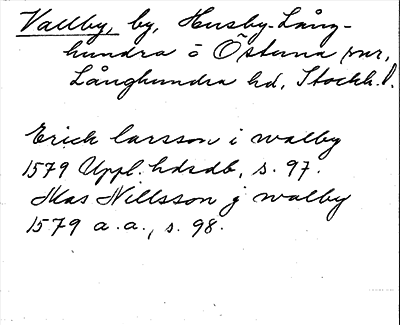 Vallby, by, Husby-Lång-
hundra o Östuna snr,
Långhundra hd, Stockh. l.
Erick larsson i walby
1579 Uppl. hdsdb, s. 97.
Mas Nillsson j walby
1579 a.a., s. 98.